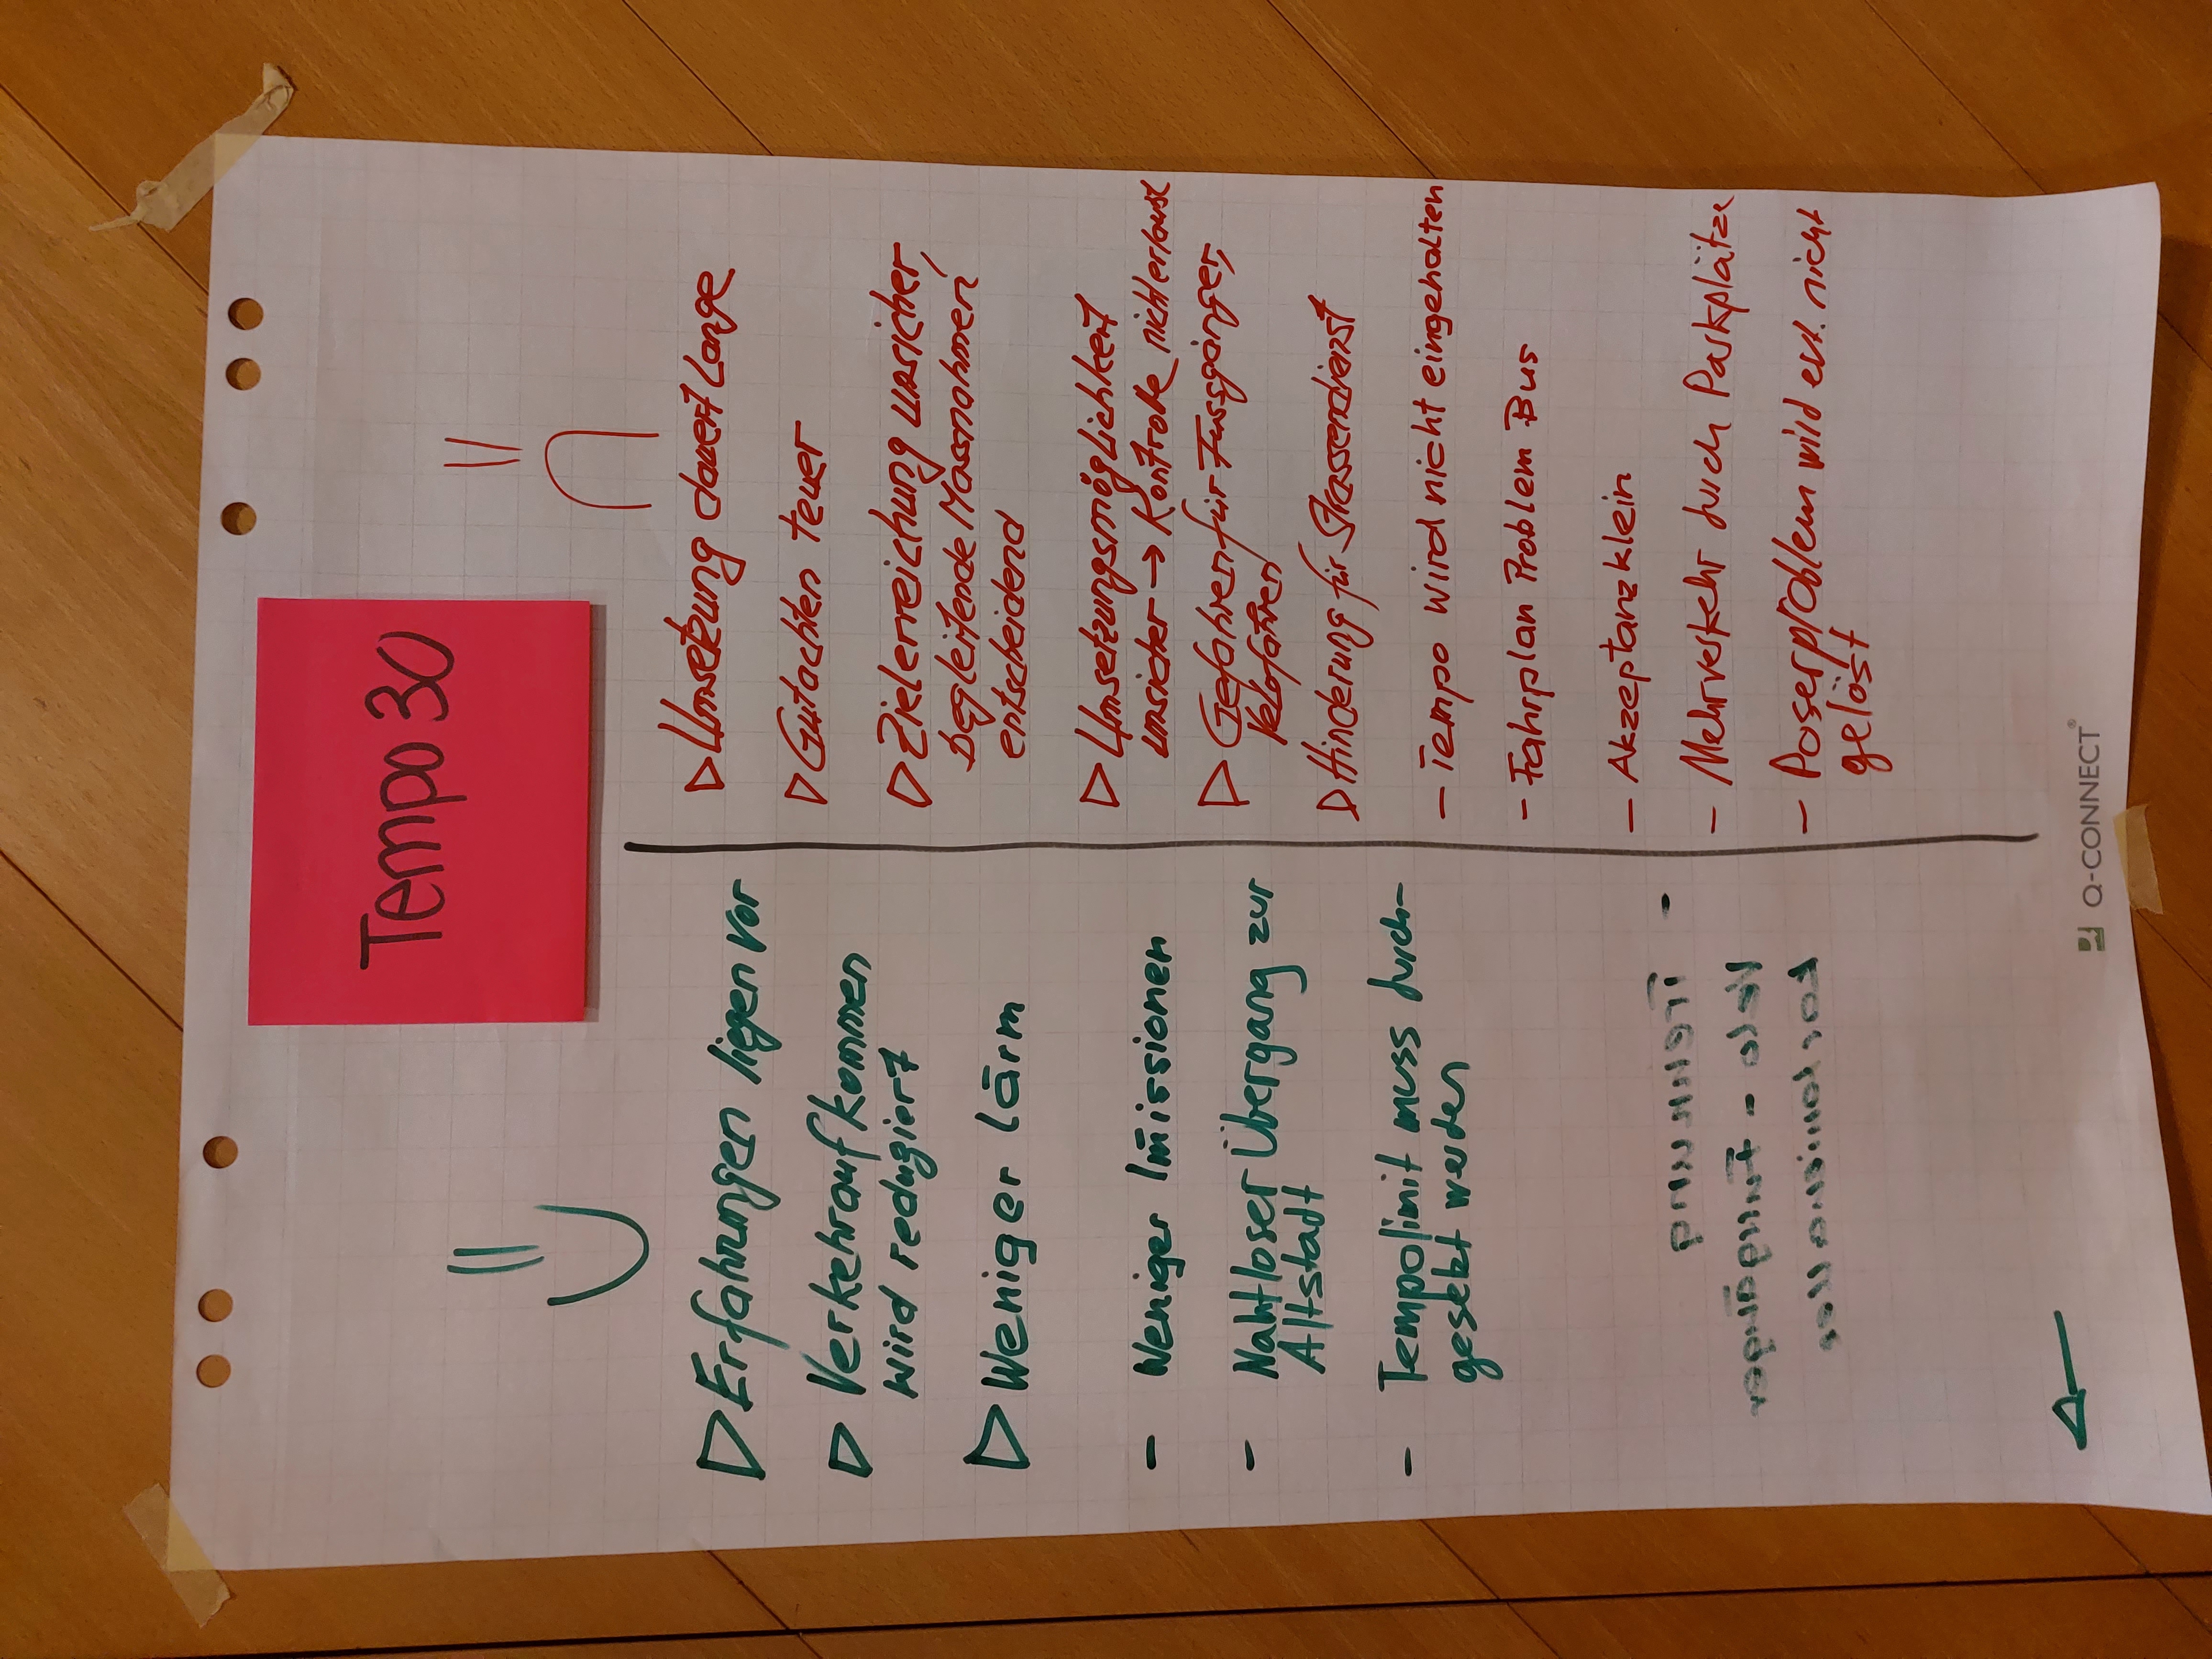 Tempo 30
▷ Erfahrungen liegen vor
▷ Verkehraufkommen
wird reduziert
▷ Weniger lärm
- Weniger Imissionen
- Nahtloser Übergang zur
Altstadt
- Tempolimit muss durch-
gesetzt werden
- Trennung
Velo - Fussgänger
▷ Umsetzung dauert Lange
▷ Gutachten teuer
▷ Zielerreichung unsicher,
begleitende Massnahmen
entscheidend
▷ Umsetzungsmöglichkeit
unsicher → Kontrolle nicht erlaubt
▷ Gefahren für Fussgänger,
Velofahren
▷ Hinderung für Strassendienst
- Tempo wird nicht eingehalten
- Fahrplan Problem Bus
- Akzeptanz klein
- Mehrverkehr durch Parkplätze
- Poserproblem wird evt. nicht
gelöst
Q-CONNECT®